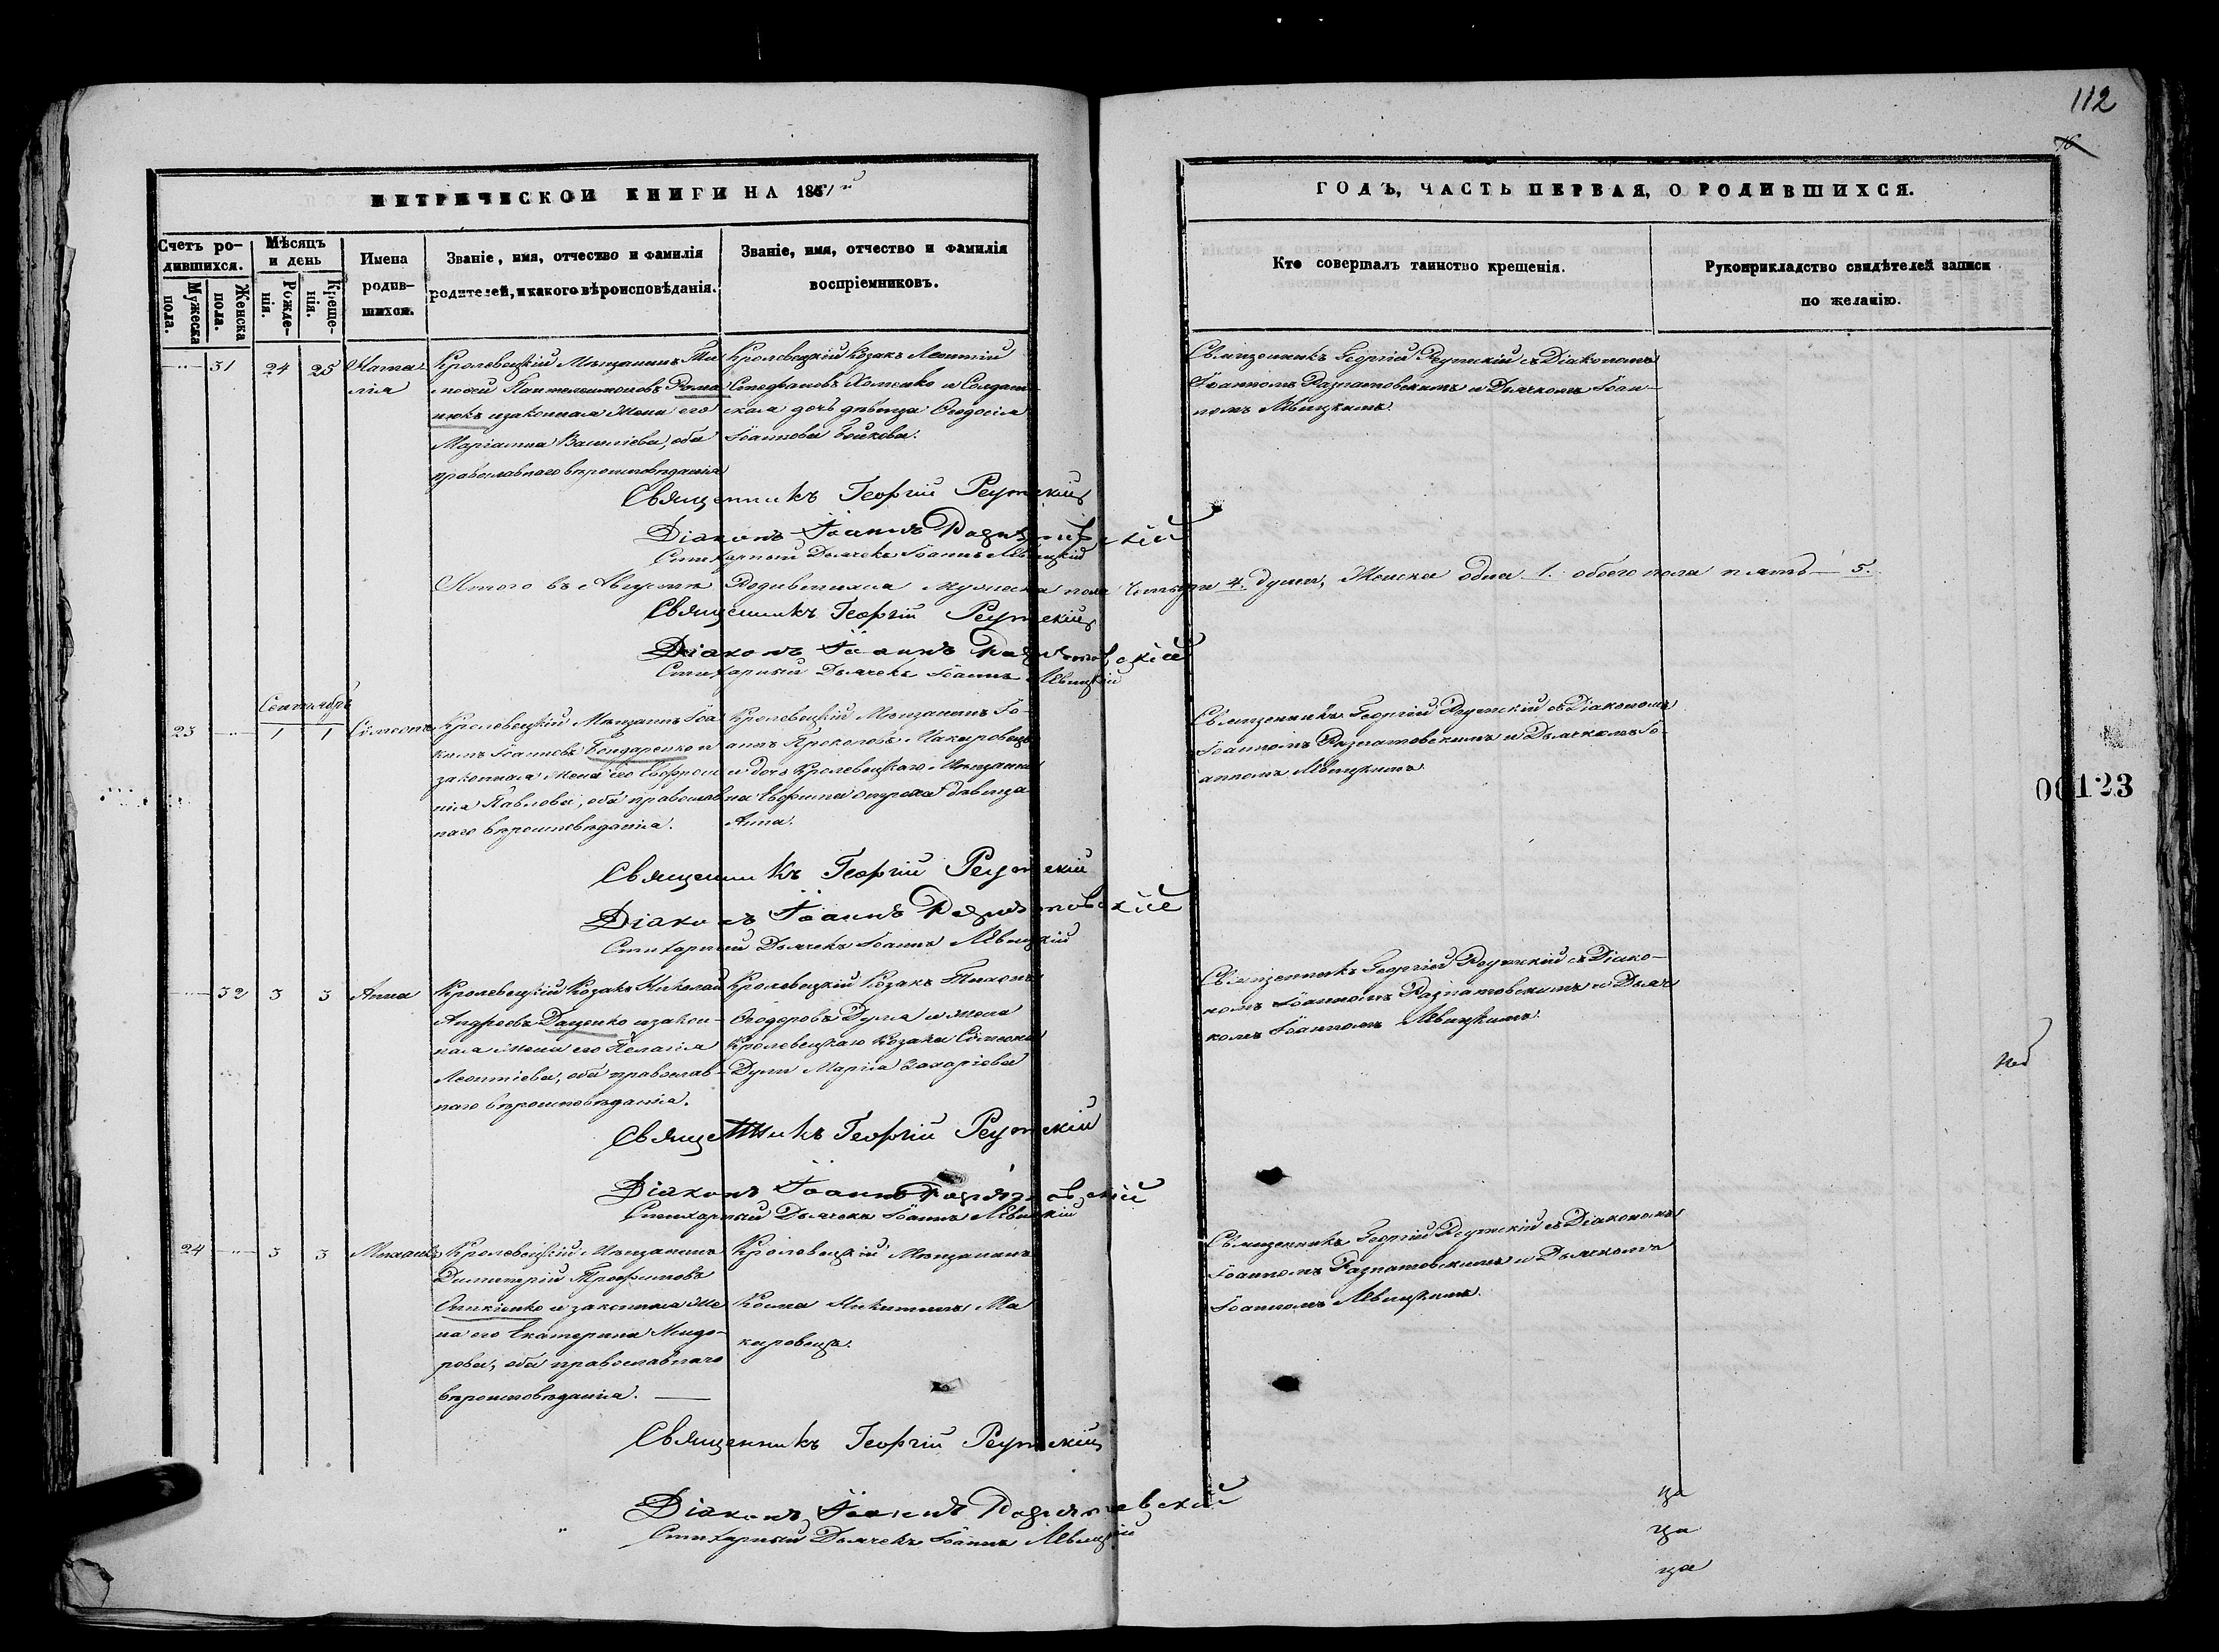 112
МЕТРИЧЕСКОЙ КНИГИ НА 18
ГОДЪ, ЧАСТЬ ПЕРВАЯ, О РОДИВШИХСЯ.
Счетъ ро-
дившихся.
Мужеска
пола.
Женска
пола.
Мѣсяцъ
и день
Рожде-
нія.
Креще-
нія.
Имена
родив-
шихся.
Званіе, имя, отчество и фамилія
родителей, и какого вѣроисповѣданія.
Званіе, имя, отчество и фамилія
воспріемниковъ.
Кто совершалъ таинство крещенія.
Рукоприкладство свидѣтелей записи
по желанію.
31
24
25
Ната-
лія
Кролевецкій Мѣщанинъ Ти
мофей Пантелеимоновъ Рома
нюкъ и законная Жена его
Маріанна Василіева, оба
православнаго вѣроисповѣданія
Кролевецкій Козакъ Леонтій
Стефановъ Хоменко и Солдат-
ская дочь дѣвица Ѳеодосія
Іоаннова Бойкова.
Священникъ Георгій Реутскій съ Діакономъ
Іоанномъ Разнатовскимъ и Дьячкомъ Іоан-
номъ Лѣвицкимъ.
Священникъ Георгій Реутскій
Діаконъ Іоаннъ Разнатовскій
Стихарный Дьячекъ Іоаннъ Лѣвицкій
Итого въ Августѣ Родившихся мужеска пола четыри 4. души, Женска одна 1. обоего пола пять 5.
Священникъ Георгій Реутскій
Діаконъ Іоаннъ Разнатовскій
Стихарный Дьячекъ Іоаннъ Лѣвицкій
Сентябрь
23
1
1
Сѵмеонъ
Кролевецкій Мѣщанинъ Іоа
кимъ Іоанновъ Бондаренко и
законная жена его Евфроси
нія Павлова, оба православ
наго вѣроисповѣданія.
Кролевецкій Мѣщанинъ Іо-
аннъ Прокоповъ Макаровецъ
и дочь Кролевецкаго Мѣщани
на Евфима дѣвица
Анна.
Священникъ Георгій Реутскій съ Діакономъ
Іоанномъ Разнатовскимъ и Дьячкомъ Іо-
анномъ Лѣвицкимъ.
00123
Священникъ Георгій Реутскій
Діаконъ Іоаннъ Разнатовскій
Стихарный Дьячекъ Іоаннъ Лѣвицкій
32
3
3
Анна
Кролевецкій Козакъ Николай
Андреевъ Даценко и закон-
ная Жена его Пелагія
Леонтіева, оба православ-
наго вѣроисповѣданія.
Кролевецкій Козакъ Тихонъ
Ѳеодоровъ Дума и жена
Кролевецкаго Козака Сѵмеона
Думы Марія Захаріева
Священникъ Георгій Реутскій съ Діако-
номъ Іоанномъ Разнатовскимъ и Дьяч
комъ Іоанномъ Лѣвицкимъ.
Священникъ Георгій Реутскій
Діаконъ Іоаннъ Разнатовскій
Стихарный Дьячекъ Іоаннъ Лѣвицкій
24
3
3
Михаилъ
Кролевецкій Мѣщанинъ
Димитрій Трофимовъ
и законная Же
на его Екатерина Исидо-
рова, оба православнаго
вѣроисповѣданія.
Кролевецкій Мѣщанинъ
Косма Никитинъ Ма
каровецъ.
Священникъ Георгій Реутскій съ Діакономъ
Іоанномъ Разнатовскимъ и Дьячкомъ
Іоанномъ Лѣвицкимъ.
Священникъ Георгій Реутскій
Діаконъ Іоаннъ Разнатовскій
Стихарный Дьячекъ Іоаннъ Лѣвицкій
ца
ца
ца